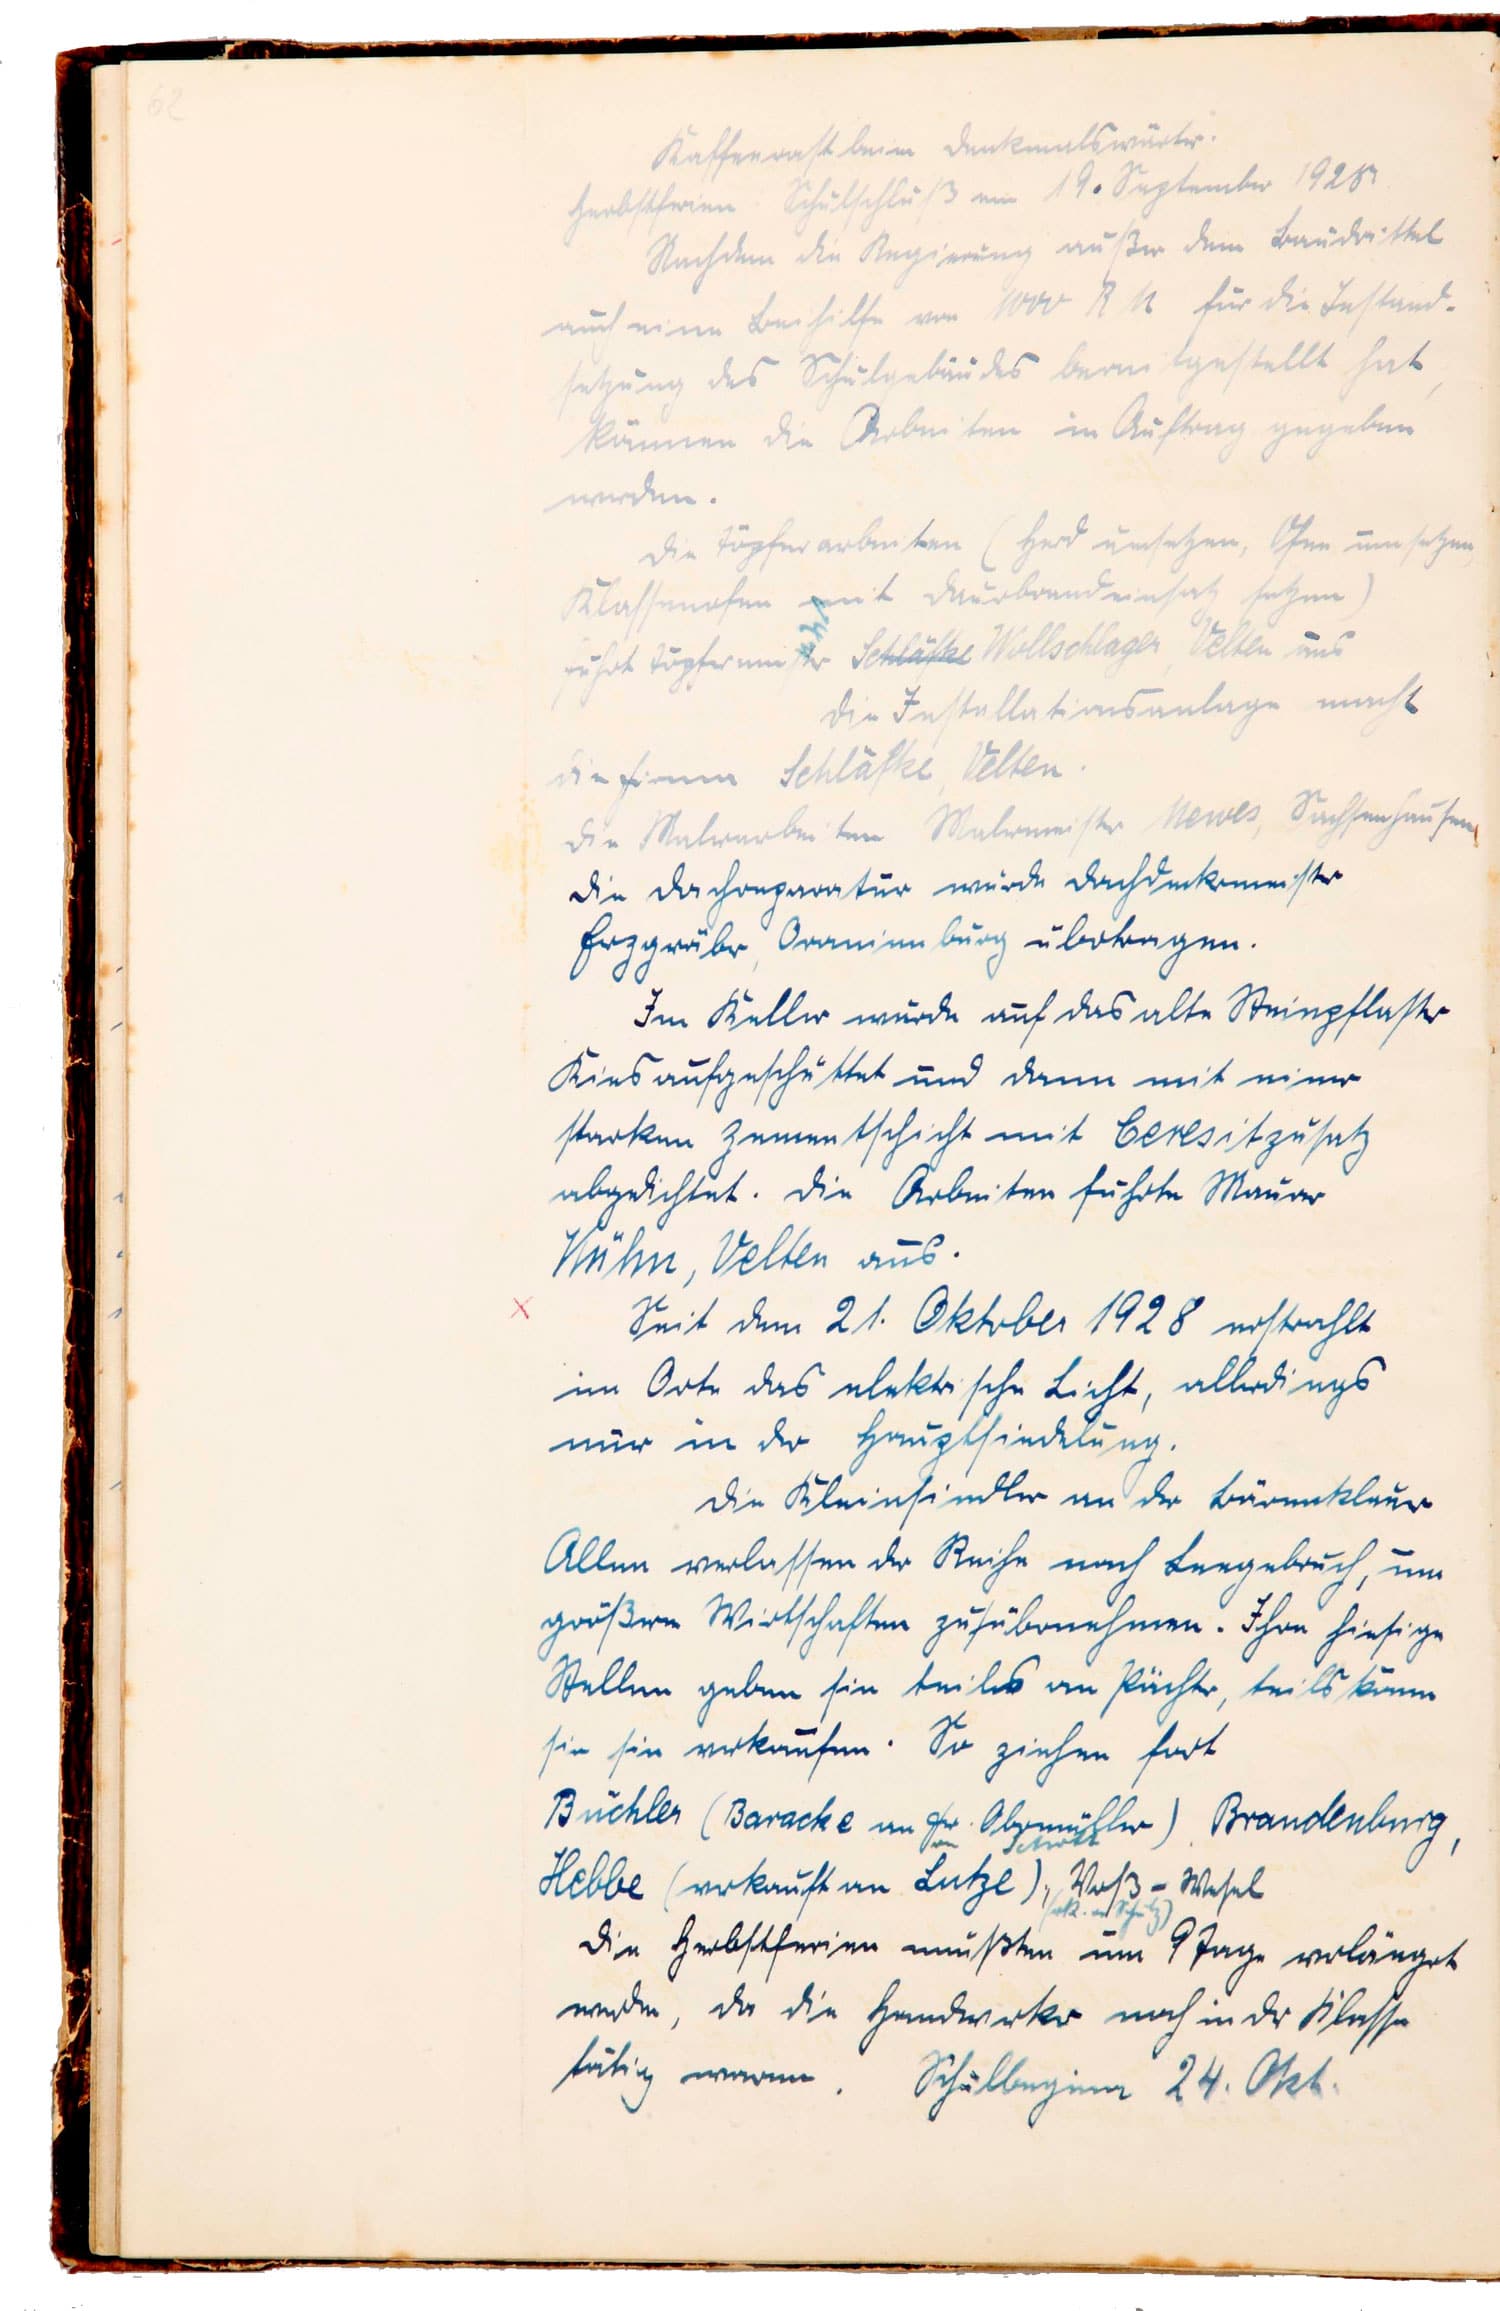 62
Kaffeerast beim Denkmalswärter.
Herbstferien Schulschluß am 19. September 1928
Nachdem die Regierung außer dem Baudrittel
auch eine Beihilfe von 1000 R M für die Instand-
setzung des Schulgebäudes bereitgestellt hat,
können die Arbeiten in Auftrag gegeben
werden.
Die Töpferarbeiten (Herd umsetzen, Ofen umsetzen,
Klassenofen mit Dauerbrandeinsatz setzen)
führt Töpfermeister Schläfke Wollschlager, Velten aus
Die Installationsanlage macht
die Firma Schläfke, Velten.
Die Malerarbeiten Malermeister Mewes, Sachsenhausen,
Die Dachreparatur wurde Dachdeckermeister
Erzgräber, Oranienburg übertragen.
Im Keller wurde auf das alte Steinpflaster
Kies aufgeschüttet und dann mit einer
starken Zementschicht mit Ceresitzusatz
abgedichtet. Die Arbeiten führte Maurer
Kühn, Velten aus.
Seit dem 21. Oktober 1928 erstrahlt
im Orte das elektrische Licht, allerdings
nur in der Hauptsiedelung.
Die Kleinsiedler an der Bärenklauer
Allee verlassen der Reihe nach Leegebruch, um
größere Wirtschaften zu übernehmen. Ihre hiesige
Stellen geben sie teils an Pächter, teils können
sie sie verkaufen. So ziehen fort
Büchler (Baracke an Fr. Obermüller) Brandenburg,
an Schott
Hebbe (verkauft an Lutze), Voß - Wesel
(vk. an Schulz)
Die Herbstferien mußten um 9 Tage verlängert
werden, da die Handwerker noch in der Klasse
tätig waren. Schulbeginn 24. Okt.